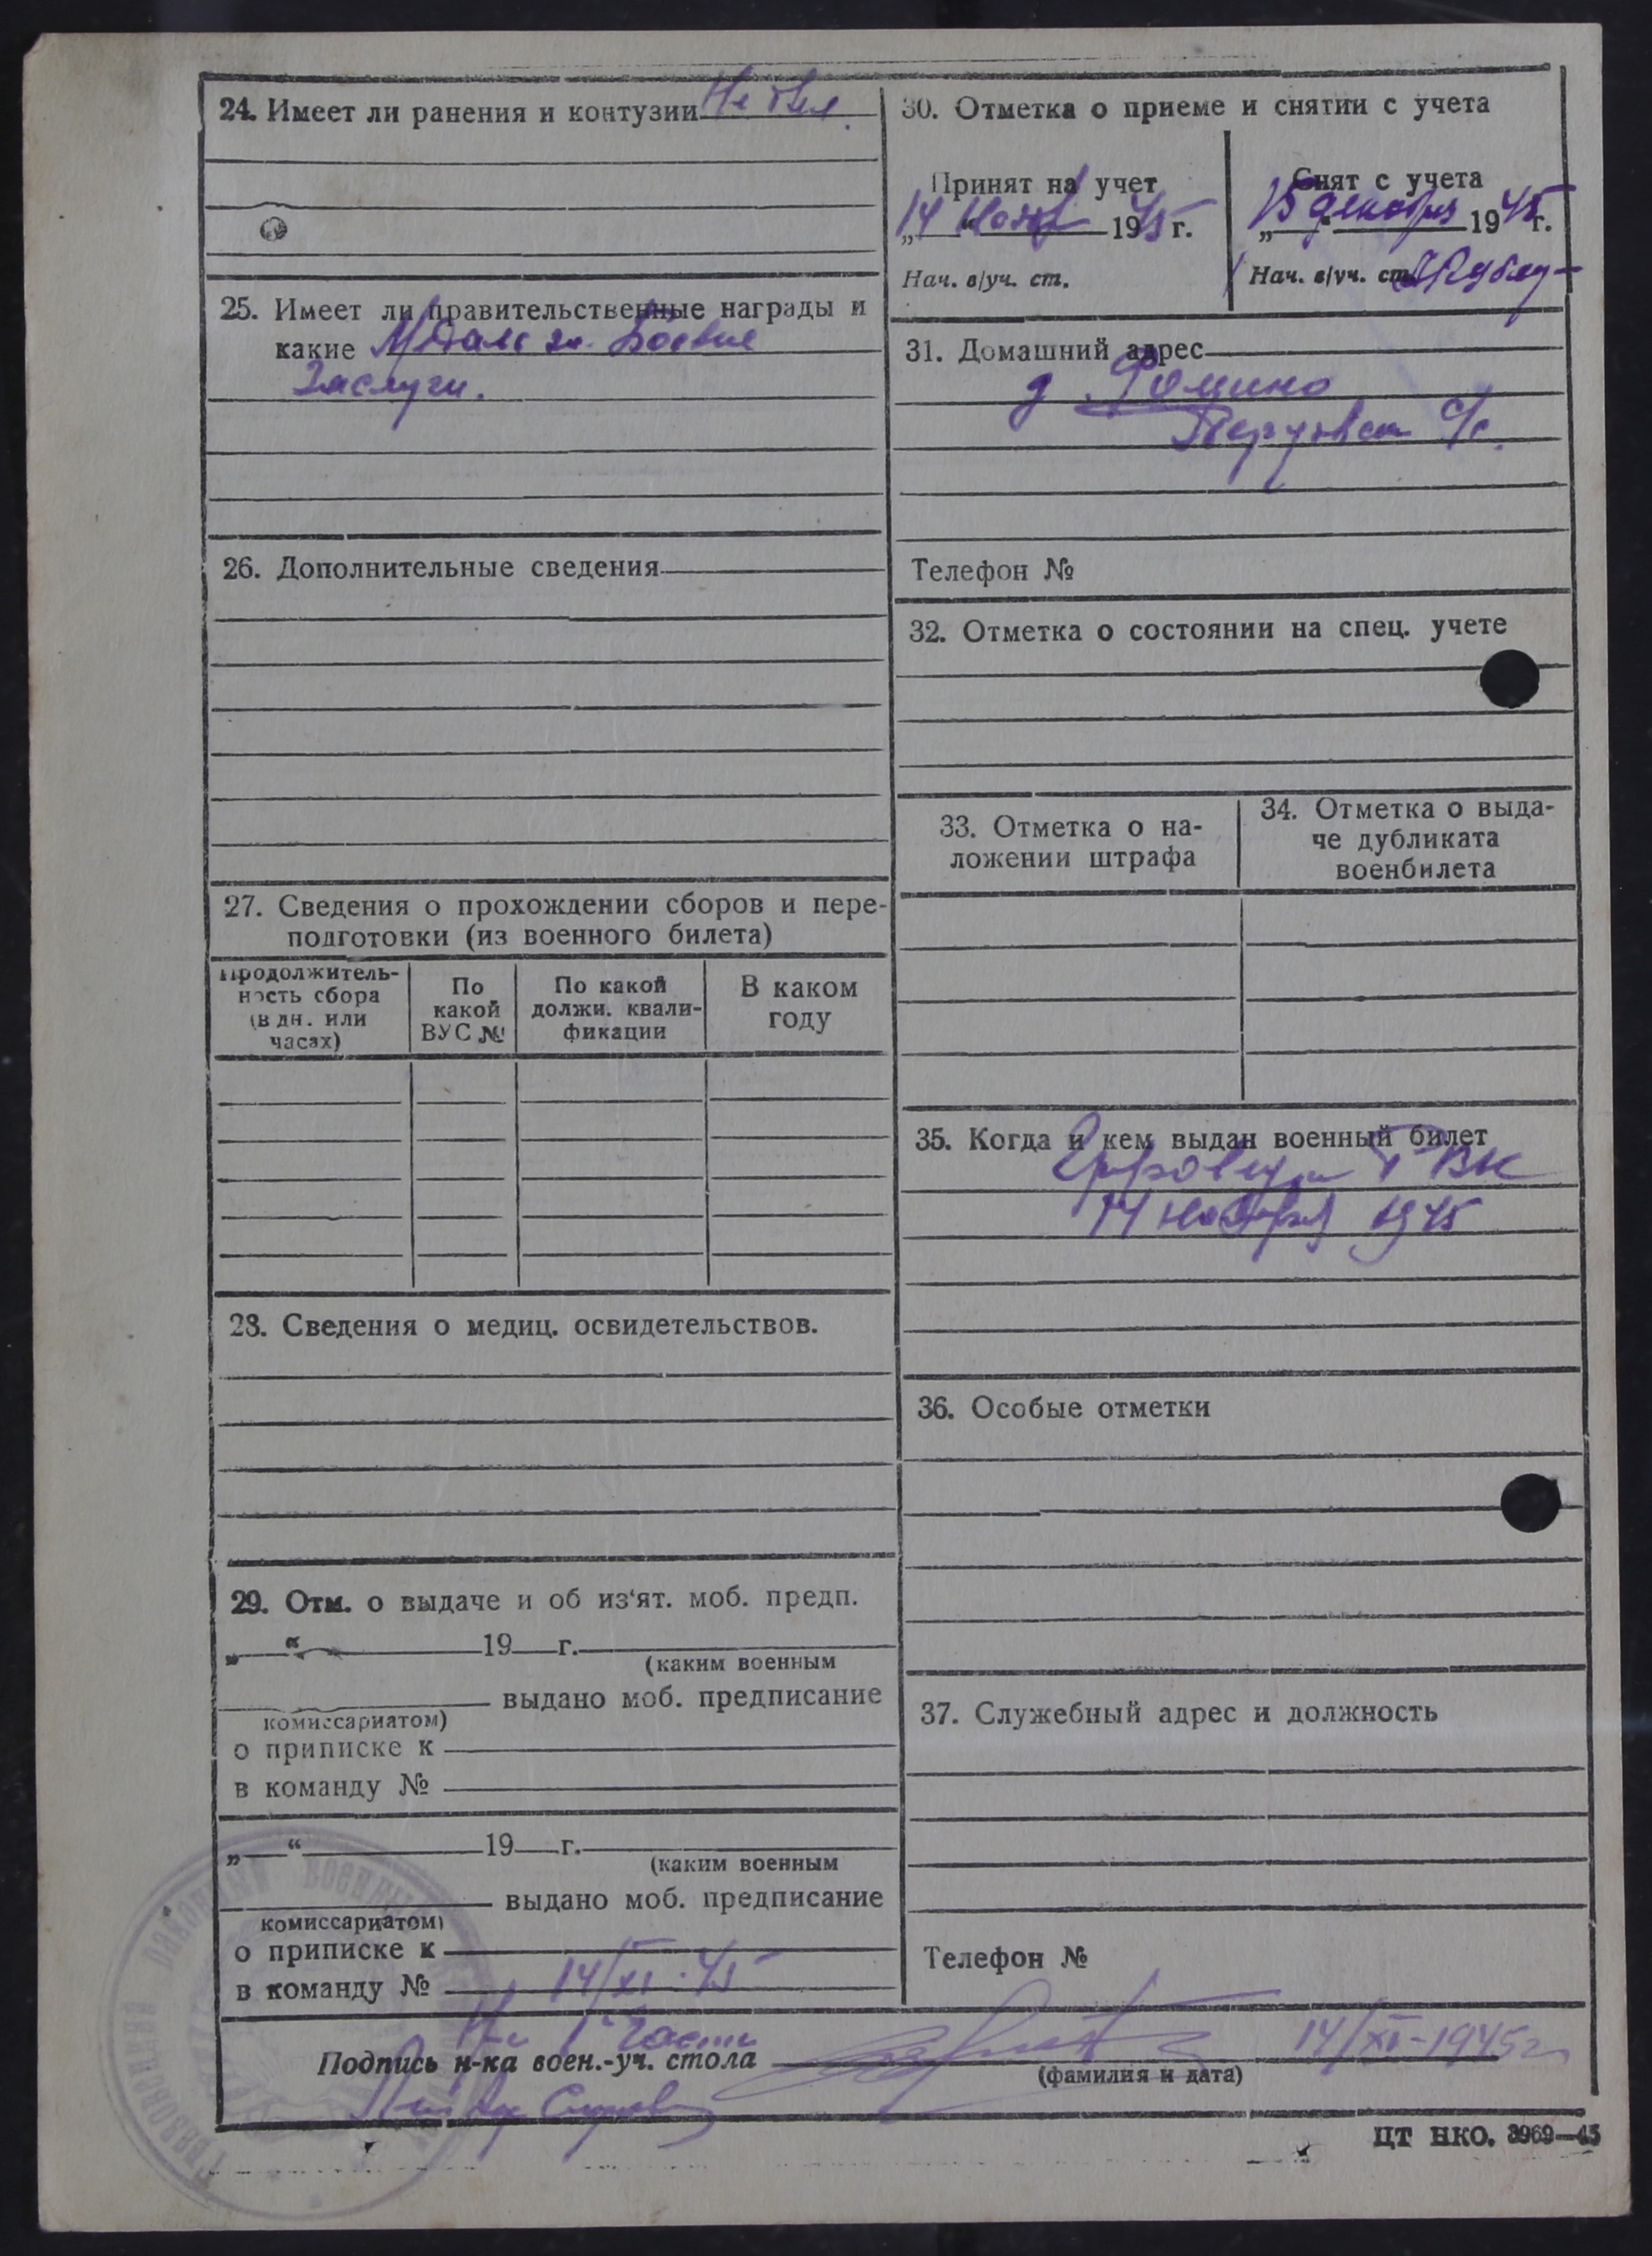 24. Имеет ли ранения и контузии Не был.
25. Имеет ли правительственные награды и
какие Медаль за Боевые
Заслуги.
26. Дополнительные сведения
27. Сведения о прохождении сборов и пере-
подготовки (из военного билета)
Продолжитель-
ность сбора
(в дн. или
часах)
По
какой
ВУС №
По какой
должн. квали-
фикации
В каком
году
28. Сведения о медиц. освидетельствов.
29. Отм. о выдаче и об из‘ят. моб. предп.
„ “ 19 г.
(каким военным
выдано моб. предписание
комиссариатом)
о приписке к
в команду №
„ “ 19 г.
(каким военным
выдано моб. предписание
комиссариатом)
о приписке к
в команду № 14/XI-45
30. Отметка о приеме и снятии с учета
Принят на учет
„14“ Нояб 1945 г.
Нач. в/уч. ст.
Снят с учета
„15“ декабря 1945 г.
Нач. в/уч. ст.
31. Домашний адрес
д. Фомино
с/с.
Телефон №
32. Отметка о состоянии на спец. учете
33. Отметка о на-
ложении штрафа
34. Отметка о выда-
че дубликата
военбилета
35. Когда и кем выдан военный билет
РВК
14 ноября 1945
36. Особые отметки
37. Служебный адрес и должность
Телефон №
1 Части
Подпись н-ка воен.-уч. стола 14/XI-1945г
(фамилия и дата)
ЦТ НКО. 3969—45